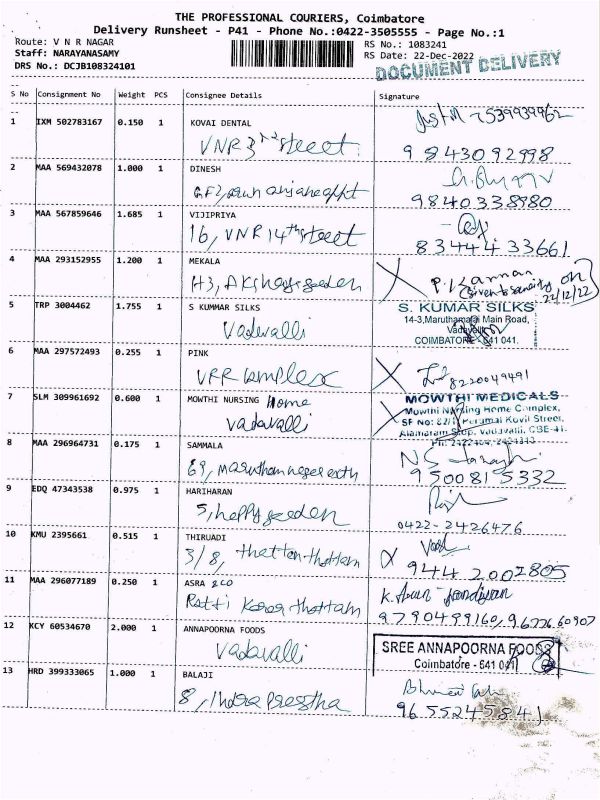 THE PROFESSIONAL COURIERS, Coimbatore
Delivery Runsheet - P41 - Phone No.:0422-3505555 - Page No.:1
Route: V N R NAGAR
Staff: NARAYANASAMY
DRS No.: DCJB108324101
RS No.: 1083241
RS Date: 22-Dec-2022
DOCUMENT DELIVERY
S No Consignment No Weight PCS Consignee Details Signature
1 IXM 502783167 0.150 1 KOVAI DENTAL 7539939962
VNR 3rd street 9843092998
2 MAA 569432078 1.000 1 DINESH
GF2, 9840338980
3 MAA 567859646 1.685 1 VIJIPRIYA
16, VNR 14th street 8344433661
4 MAA 293152955 1.200 1 MEKALA P. Kannan
H3, on 22/12/22
5 TRP 3004462 1.755 1 S KUMMAR SILKS S. KUMAR SILKS
Vadavalli 14-3,Maruthamalai Main Road,
Vadavalli
COIMBATORE - 641 041.
6 MAA 297572493 0.255 1 PINK
VRR Complex 8220049491
7 SLM 309961692 0.600 1 MOWTHI NURSING Home MOWTHI MEDICALS
Vadavalli Mowthi Nursing Home Complex,
SF No: 82/1 Perumal Kovil Street,
Stop, Vadavalli, CBE-41.
Ph: 2422404, 2424313
8 MAA 296964731 0.175 1 SAMMALA
69, 9500815332
9 EDQ 47343538 0.975 1 HARIHARAN
5, happy garden 0422-2426476
10 KMU 2395661 0.515 1 THIRUADI
3/8, thottam 944 2002805
11 MAA 296077189 0.250 1 ASRA K. Arun
thottam 9790499160, 96226.60907
12 KCY 60534670 2.000 1 ANNAPOORNA FOODS SREE ANNAPOORNA FOODS
Vadavalli Coimbatore - 641 041
13 HRD 399333065 1.000 1 BALAJI
8, Indra prestha 9655245841